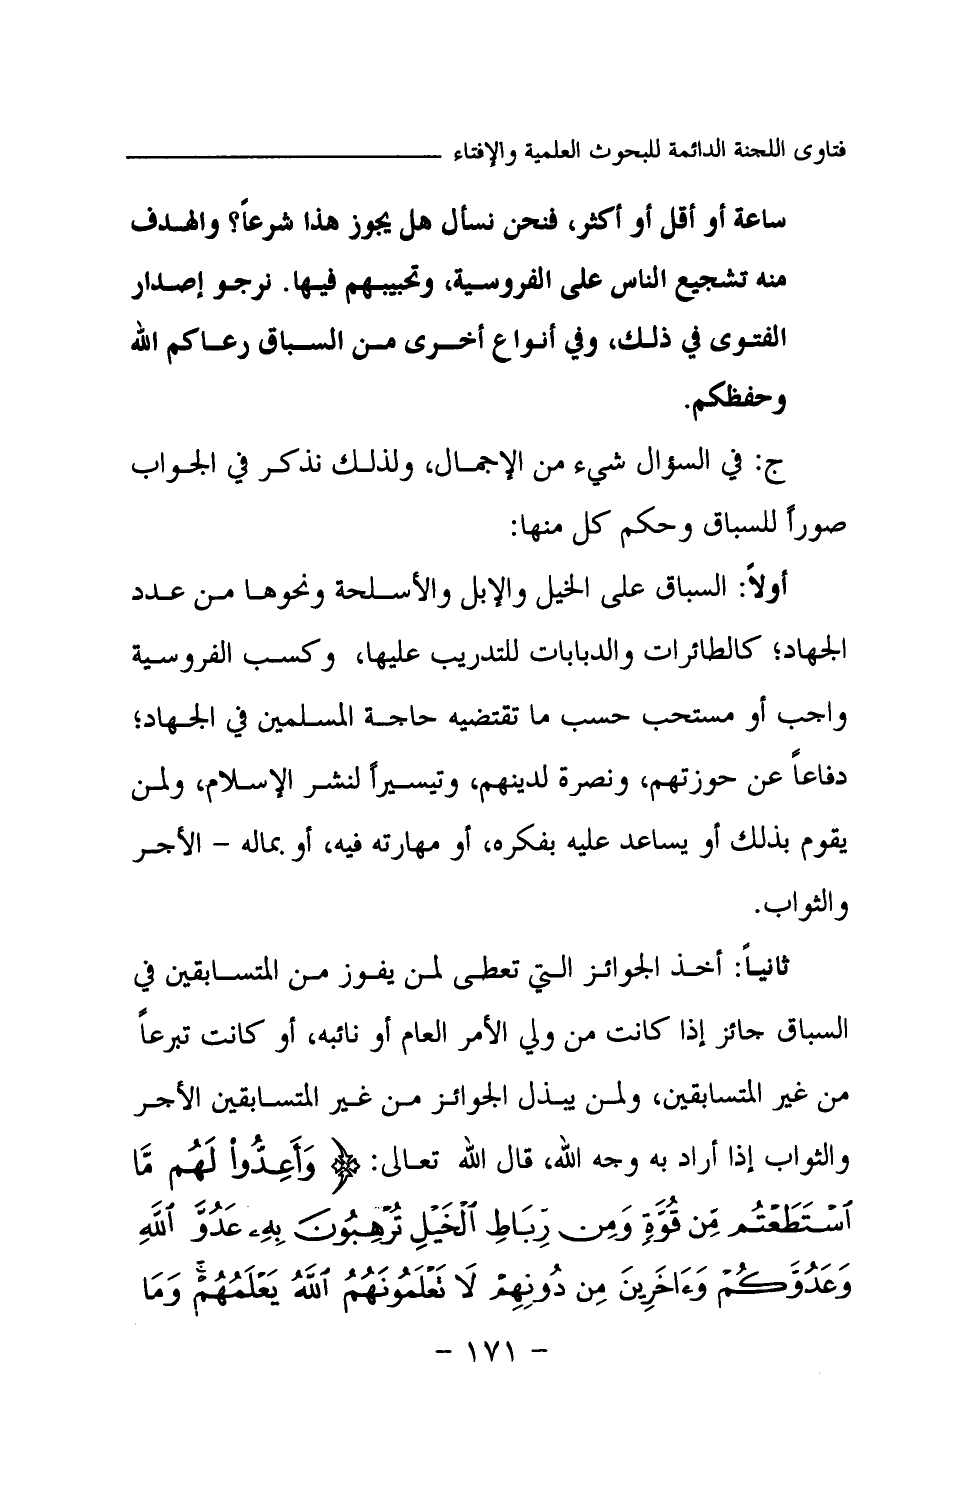 فتاوى اللجنة الدائمة للبحوث العلمية والإفتاء
ساعة أو أقل أو أكثر، فنحن نسأل هل يجوز هذا شرعاً؟ والهدف
منه تشجيع الناس على الفروسية، وتحبيبهم فيها. نرجو إصدار
الفتوى في ذلك، وفي أنواع أخرى من السباق رعاكم الله
وحفظكم.
ج: في السؤال شيء من الإجمال، ولذلك نذكر في الجواب
صوراً للسباق وحكم كل منها:
أولاً: السباق على الخيل والإبل والأسلحة ونحوها من عدد
الجهاد؛ كالطائرات والدبابات للتدريب عليها، وكسب الفروسية
واجب أو مستحب حسب ما تقتضيه حاجة المسلمين في الجهاد؛
دفاعاً عن حوزتهم، ونصرة لدينهم، وتيسيراً لنشر الإسلام، ولمن
يقوم بذلك أو يساعد عليه بفكره، أو مهارته فيه، أو بماله - الأجر
والثواب.
ثانياً: أخذ الجوائز التي تعطى لمن يفوز من المتسابقين في
السباق جائز إذا كانت من ولي الأمر العام أو نائبه، أو كانت تبرعاً
من غير المتسابقين، ولمن يبذل الجوائز من غير المتسابقين الأجر
والثواب إذا أراد به وجه الله، قال الله تعالى: ﴿ وَأَعِدُّواْ لَهُم مَّا
ٱسْتَطَعْتُم مِّن قُوَّةٍ وَمِن رِّبَاطِ ٱلْخَيْلِ تُرْهِبُونَ بِهِۦ عَدُوَّ ٱللَّهِ
وَعَدُوَّكُمْ وَءَاخَرِينَ مِن دُونِهِمْ لَا تَعْلَمُونَهُمُ ٱللَّهُ يَعْلَمُهُمْ ۚ وَمَا
- ١٧١ -